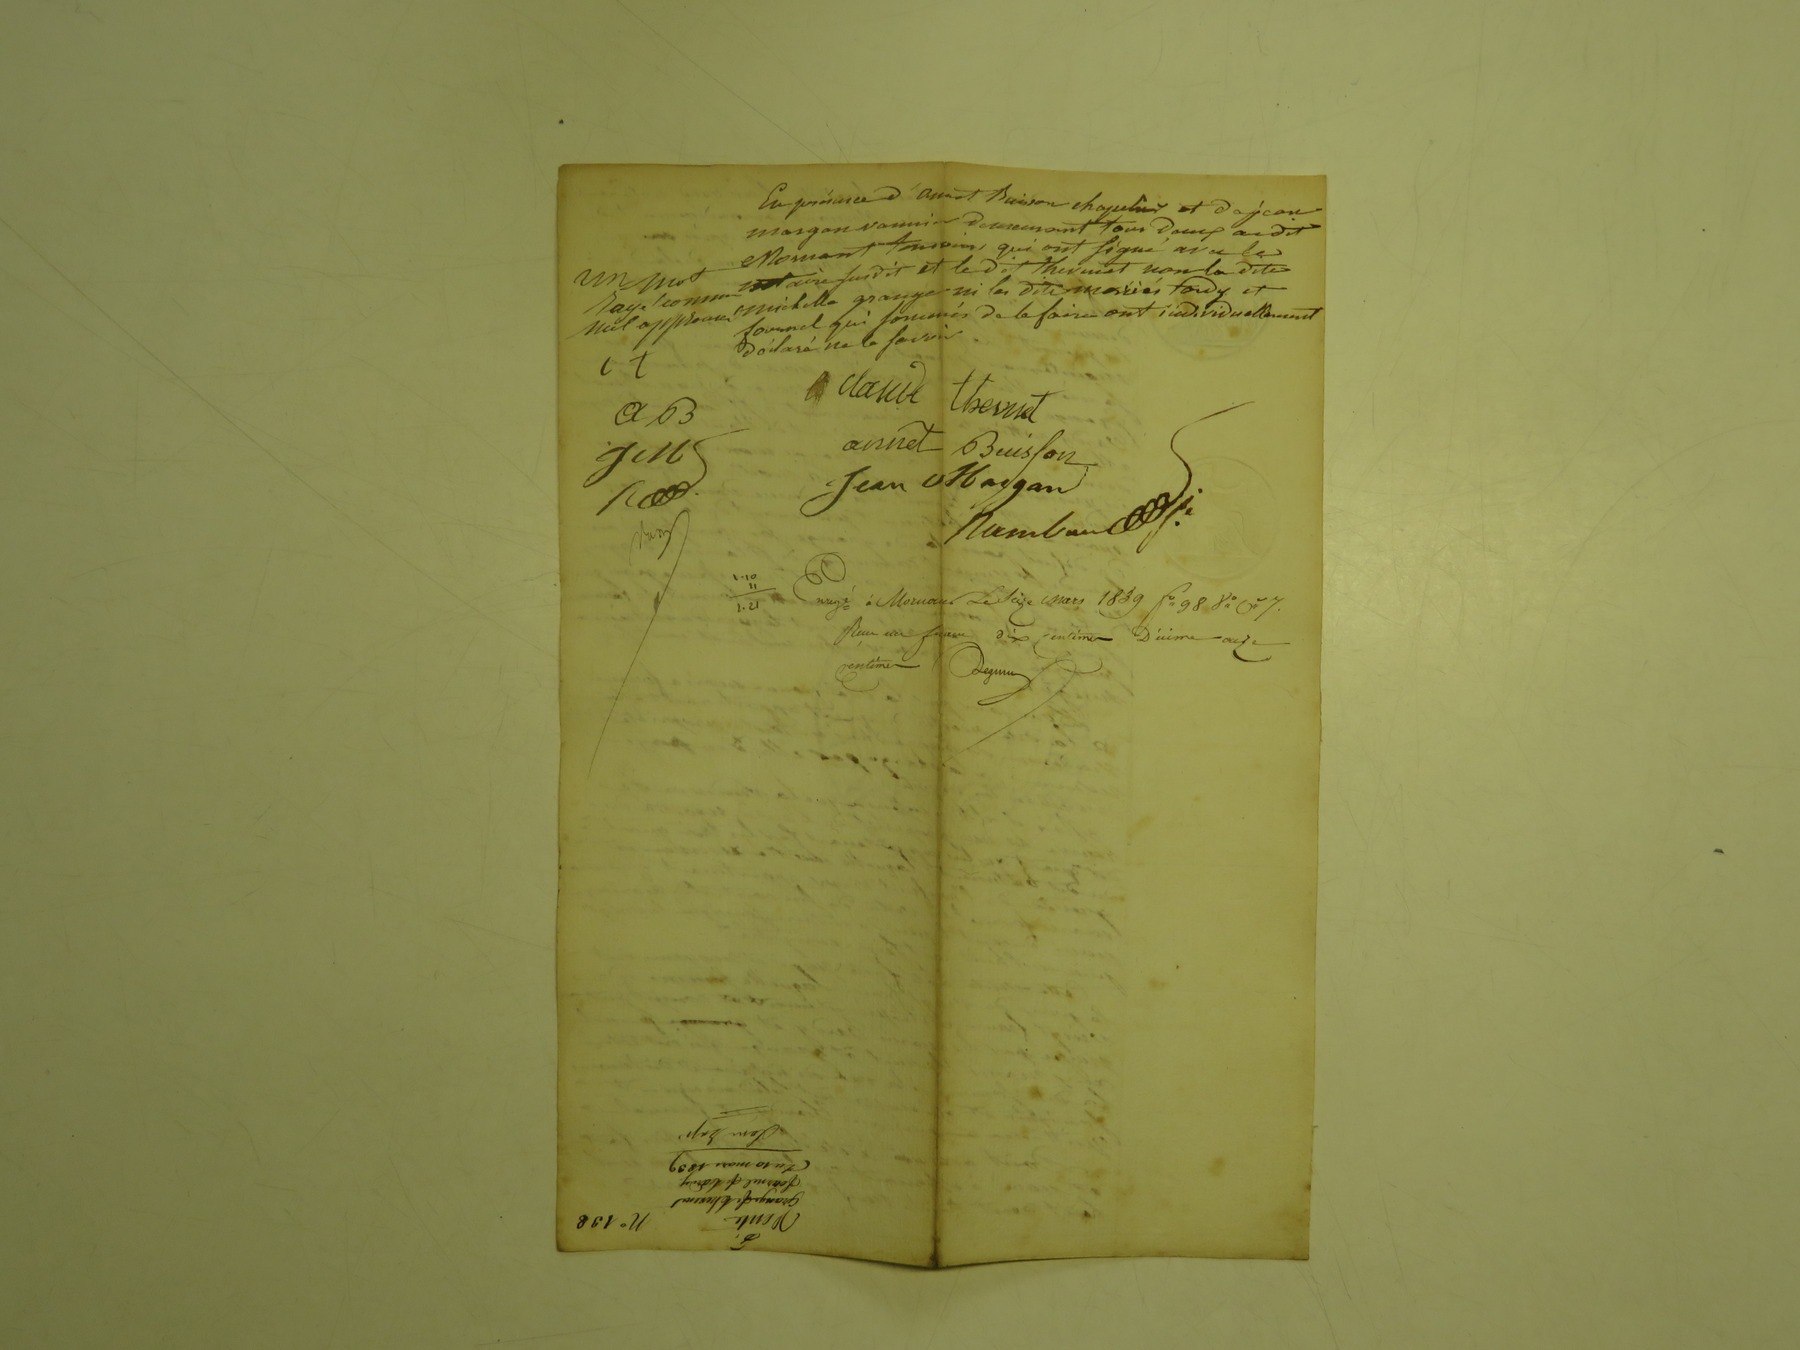 En présence d'annet Buisson chapelier et de jean
margan vannier demeurant tous deux audit
Mornant temoins qui ont signé avec le
notaire susdit et le dit thevenet non la dite
michelle grange ni les dits mariés tardy et
fournel qui sommés de le faire ont individuellement
déclaré ne le savoir
un mot
rayé comme
nul approuvé
c t
a B
J M
R
claude thevenet
annet Buisson
Jean Margan
Rambaud
1.10
11
1.21
Enregé à Mornant le seize mars 1839 fo 98 Vo Ce 7.
Reçu un franc dix centimes Décime onze
centimes
Nº 138
Vente
grange à thevenet
fournel & tardy
Du 10 mars 1839